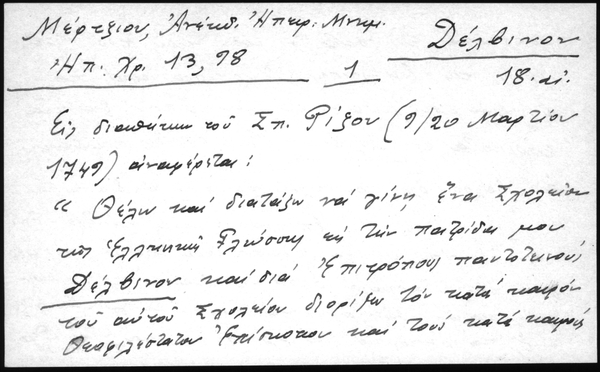 Μέρτζιου, Ἀνέκδ. Ἠπειρ. Μνημ. Δέλβινον
Ἠπ. Χρ. 13, 98 1 18. αἰ.
Εἰς διαθήκην τοῦ Σπ. Ρίζου (9/20 Μαρτίου
1749) ἀναφέρεται:
« Θέλω καὶ διατάζω νά γίνῃ ἕνα Σχολεῖον
τῆς Ἑλληνικῆς Γλώσσης εἰς τὴν πατρίδα μου
Δέλβινον καὶ διά Ἐπιτρόπους παντοτεινούς
τοῦ αὐτοῦ Σχολείου διορίζω τόν κατά καιρόν
Θεοφιλέστατον Ἐπίσκοπον καί τούς κατά καιρούς